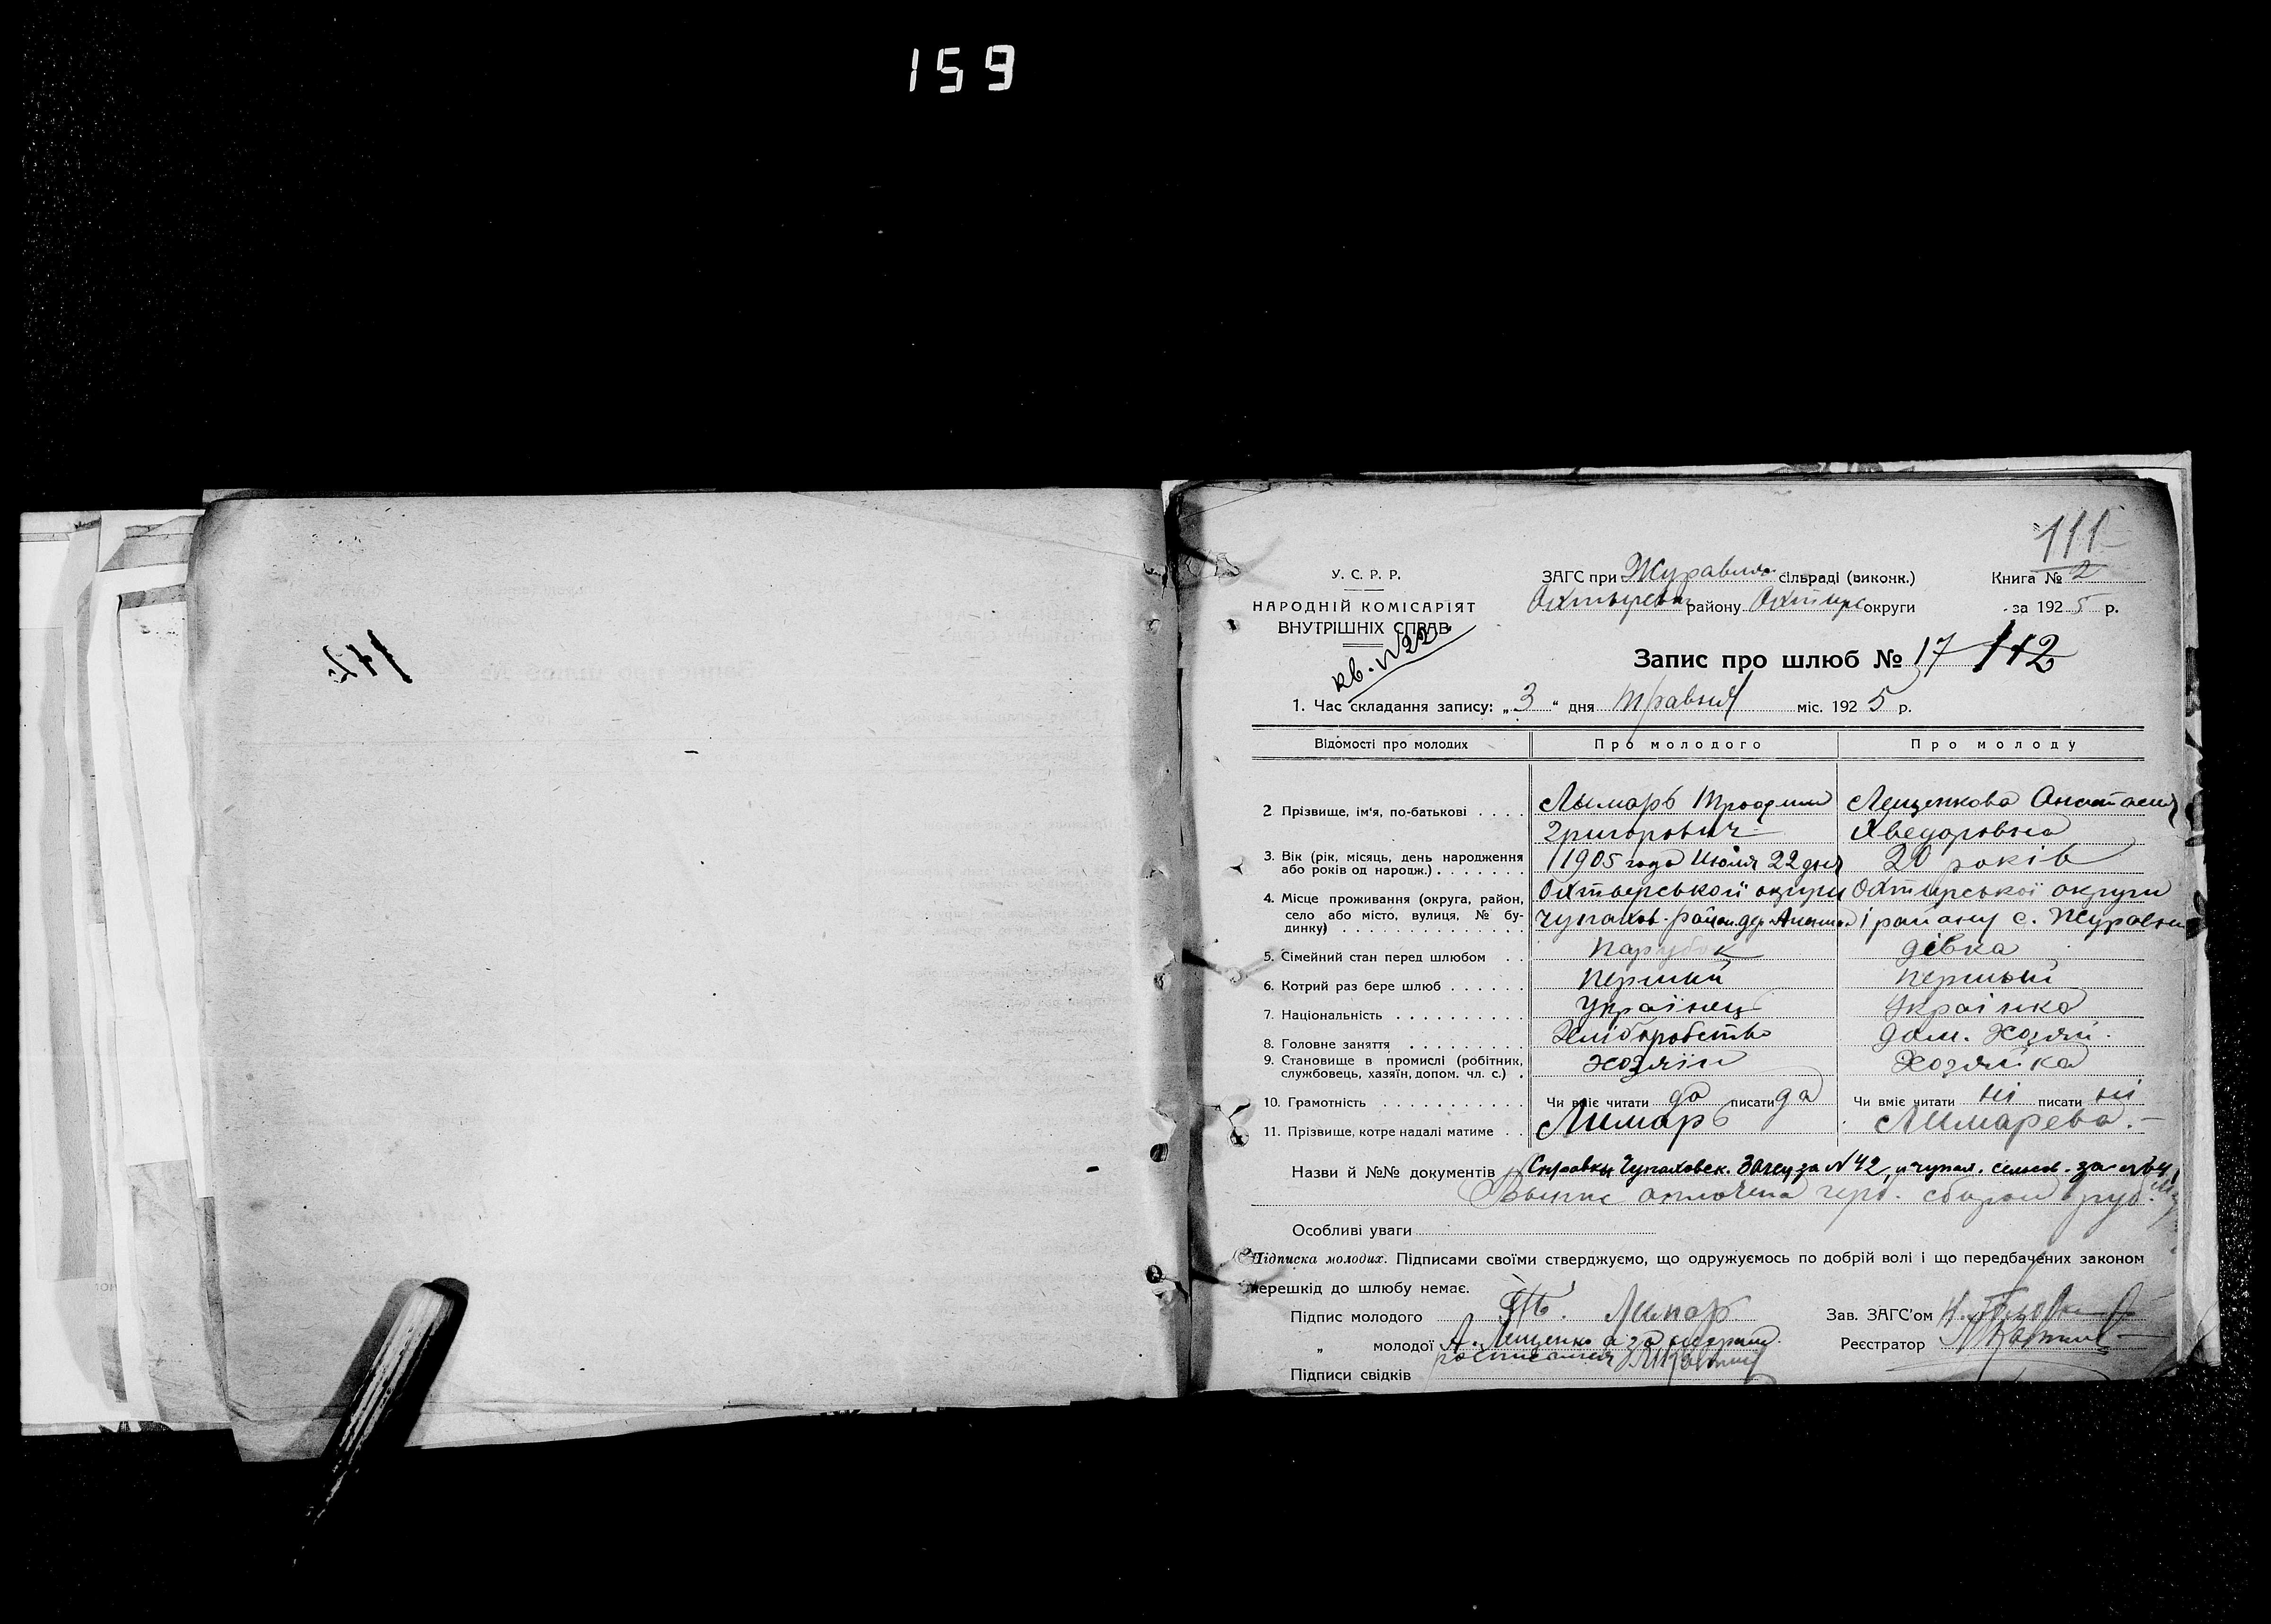 159
111
У. С. Р. Р.
НАРОДНІЙ КОМІСАРІЯТ
ВНУТРІШНІХ СПРАВ
кв. N 22
ЗАГС при Журавня сільраді (виконк.)
району округи
Книга № 2
за 1925 р.
Запис про шлюб № 17 112
1. Час складання запису: „3“ дня травня міс. 1925 р.
Відомості про молодих Про молодого Про молоду
2 Прізвище, ім'я, по-батькові . . . .
Лымарь
Григорович
Лещенкова Анастасия
Хведоровна
3. Вік (рік, місяць, день народження
або років од народж.) . . . . . . .
1905 года Июля 22 дня
20 років
4. Місце проживання (округа, район,
село або місто, вулиця, № бу-
динку) . . . . . . . . . . . . . .
Охтырської округи
Чупахов. район дер.
Охтирської округи
і району с. Журавня
5. Сімейний стан перед шлюбом . .
Парубок
дівка
6. Котрий раз бере шлюб . . . . . .
Перший
першый
7. Національність . . . . . . . . . .
Українец
Українка
8. Головне заняття . . . . . . . . .
Хліборобство
дом. хозяй.
9. Становище в промислі (робітник,
службовець, хазяїн, допом. чл. с.) .
хозяїн
Хозяйка
10. Грамотність . . . . . . . . . . .
Чи вміє читати да писати да
Чи вміє читати ні писати ні
11. Прізвище, котре надалі матиме . .
Лимарь
Лимарева.
Назви й №№ документів Справки Чупаховск. Загсу за N 42, и чупах. сельсов. за
Выпис оплочена герб. сбором
Особливі уваги
Підписка молодих. Підписами своїми стверджуємо, що одружуємось по добрій волі і що передбачених законом
перешкід до шлюбу немає.
Підпис молодого Лимар
Зав. ЗАГС'ом
„ молодої А. Лещенко а за
росписался
Реєстратор
Підписи свідків